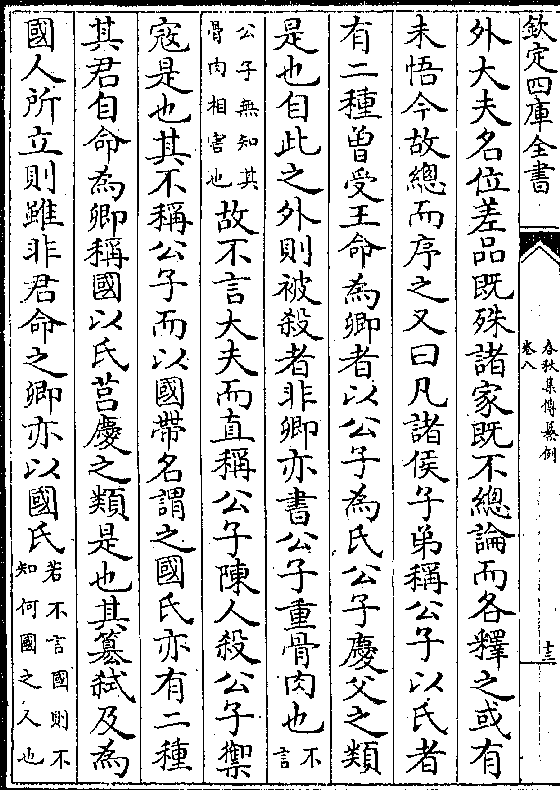 欽定四庫全書
春秋集傳纂例
卷八
十三
外大夫名位差品既殊諸家既不總論而各釋之或有
未悟今故總而序之又曰凡諸侯子弟稱公子以氏者
有二種曾受王命為卿者以公子為氏公子慶父之類
是也自此之外則被殺者非卿亦書公子重骨肉也不言
公子無知其骨肉相害也故不言大夫而直稱公子陳人殺公子禦
寇是也其不稱公子而以國帶名謂之國氏亦有二種
其君自命為卿稱國以氏莒慶之類是也其簒弑及為
國人所立則雖非君命之卿亦以國氏若不言國則不知何國之人也